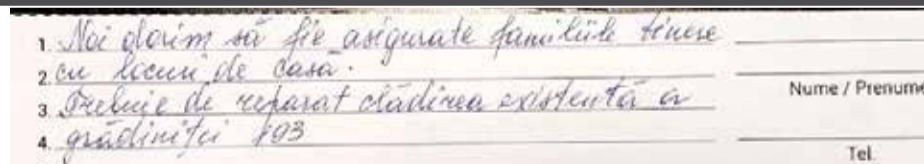 1. Noi dorim să fie asigurate familiile tinere
2. cu locuri de casă.
Nume / Prenume
3. Trebuie de reparat clădirea existentă a
4. grădiniței 193
Tel